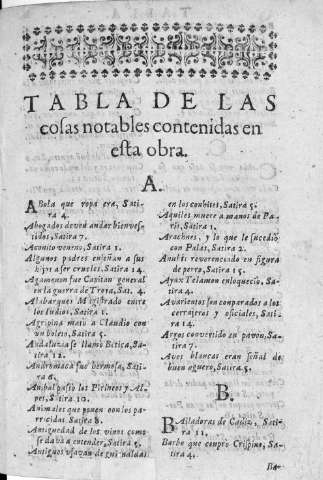 TABLA DE LAS
cosas notables contenidas en
esta obra.
A.
ABola que ropa era, Sati-
ra 4.
Abogados deven andar bien ves-
tidos, Satira 7.
Aconito veneno, Satira 1.
Algunos padres enseñan a sus
hijos a ser crueles, Satira 14.
Agamenon fue Capitan general
en la guerra de Troya, Sat. 4.
Alabarquez Magistrado entre
los Iudios, Satira 1.
Agripina mató a Claudio con
un boleto, Satira 5.
Andaluzia se llamò Betica, Sa-
tira 12.
Andromaca fue hermosa, Sati-
ra 6.
Anibal passò los Pirineos y Al-
pes, Satira 10.
Animales que ponen con los par-
ricidas Satira 8.
Antiguedad de los vinos como
se dava a entender, Satira 5.
Antiguos usavan de guirnaldas
en los conbites, Satira 5.
Aquiles muere a manos de Pa-
ris, Satira 1.
Arachnes, y lo que le sucediò
con Palas, Satira 2.
Anubis reverenciado en figura
de perro, Satira 15.
Ayax Telamon enloqueciò, Sa-
tira 4.
Avarientos son comparados a los
cerrajeros y oficiales, Sati-
ra 14.
Argos convertido en pavon, Sa-
tira 7.
Aves blancas eran señal de
buen aguero, Satira 5.
B.
BAiladoras de Cadiz, Sati-
ra 11.
Barbo que comprò Crispino, Sa-
tira 4.
Ba-